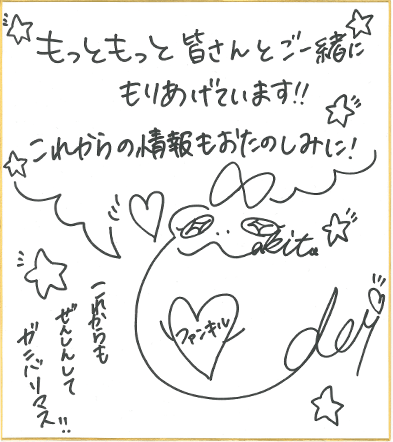 もっともっと皆さんとご一緒に
もりあげています!!
これからの情報もおたのしみに!
akita
ファンキル
これからも
ぜんしんして
ガンバリマス!!